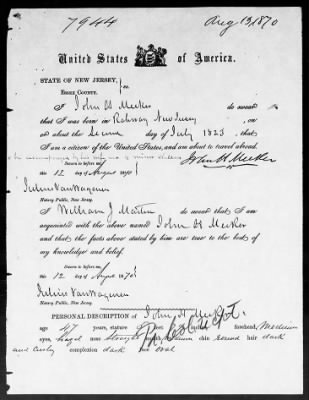 7944
Aug 13, 1870
United States of America.
STATE OF NEW JERSEY, } ss.
ESSEX COUNTY.
I John H Meeker do swear
that I was born in Rahway New Jersey, on
or about the Second day of July 1823, that
I am a citizen of the United States, and am about to travel abroad.
to be accompanied by his wife
John H Meeker
Sworn to before me
this 12 day of August 1870
Julius Van Wagenen
Notary Public, New Jersey.
I William J Martin do swear that I am
acquainted with the above named John H Meeker
and that the facts above stated by him are true to the best of
my knowledge and belief.
Sworn to before me
this 12 day of August 1870
Julius Van Wagenen
Notary Public, New Jersey.
PERSONAL DESCRIPTION of John H Meeker
age, 47 years, stature feet, inches forehead, Medium
eyes, hazel nose straight mouth medium chin round hair dark
and curly complexion dark face oval